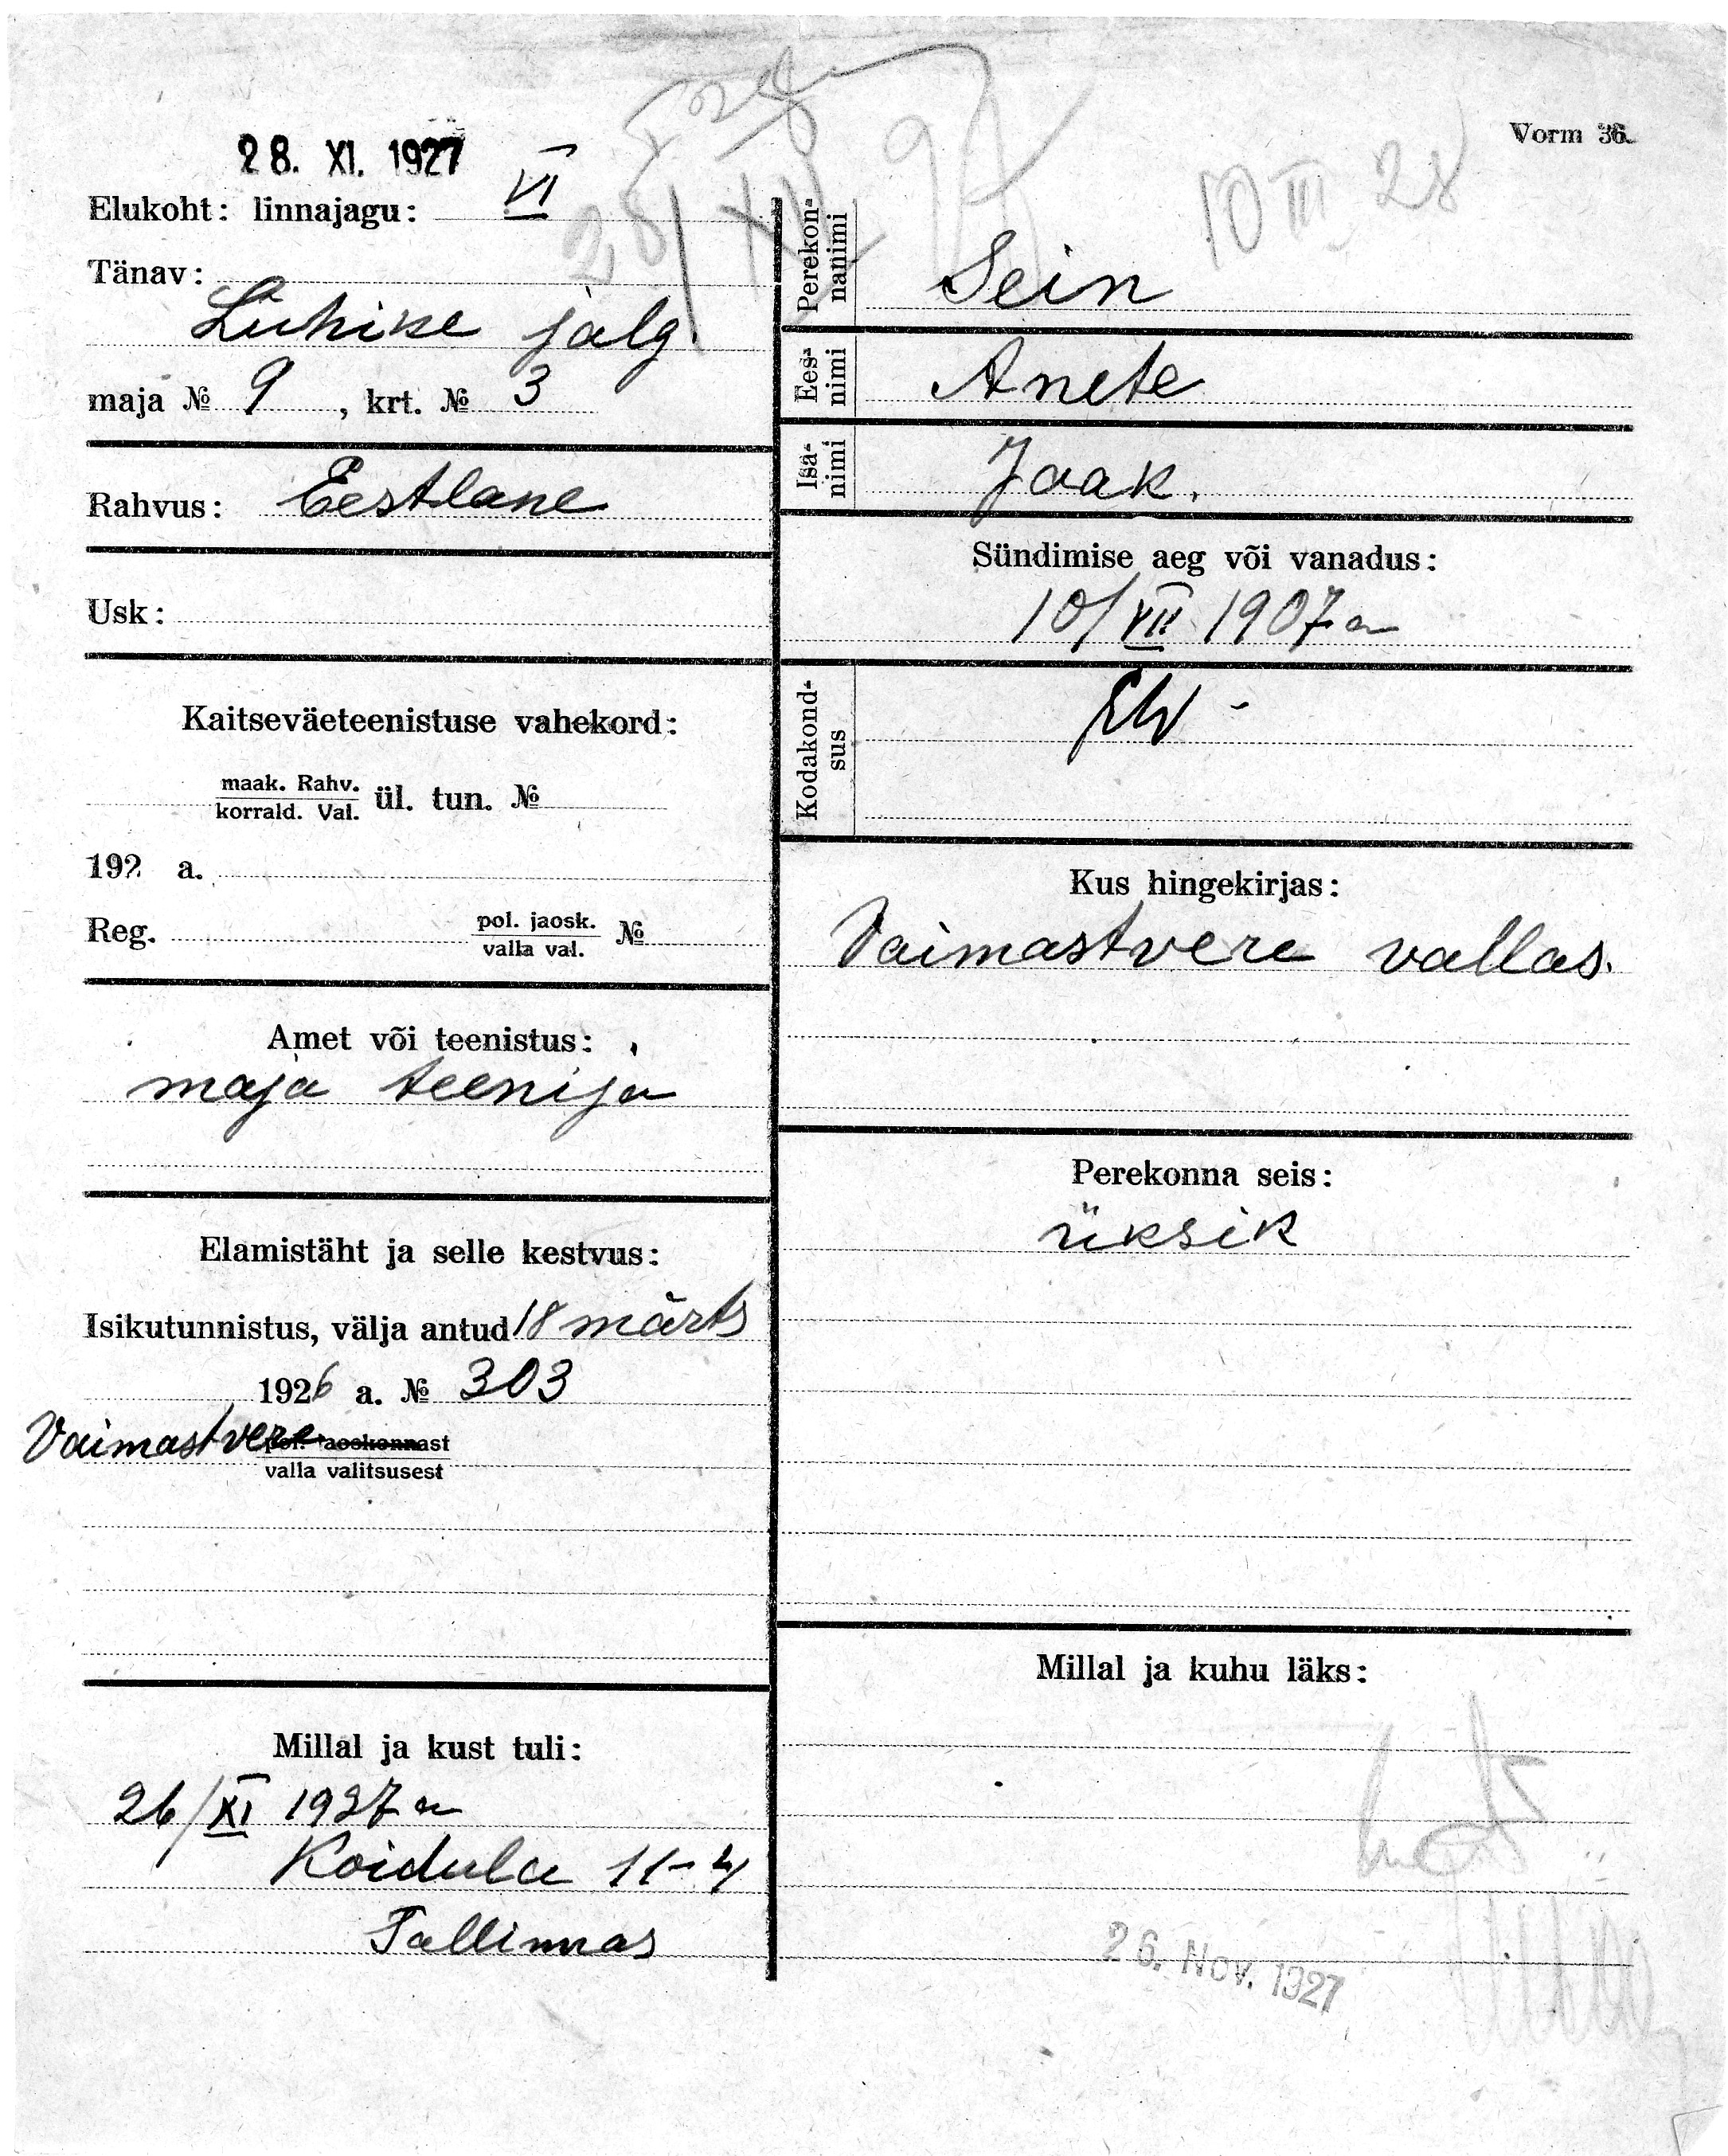 Vorm 36.
28. XI. 1927
10 III 28
Elukoht: linnajagu: VI
Tänav:
Lühike jalg
maja № 9, krt. № 3
Rahvus: Eestlane
Usk:
Kaitseväeteenistuse vahekord:
maak. Rahv.
korrald. Val. ül. tun. №
192 a.
Reg. pol. jaosk.
valla val. №
Amet või teenistus:
maja teenija
Elamistäht ja selle kestvus:
Isikutunnistus, välja antud 18 märts
1926 a. № 303
Vaimastvere pol. jaoskonnast
valla valitsusest
Millal ja kust tuli:
26/XI 1927 a
Koidula 11-4
Tallinnas
Perekon-
nanimi Sein
Ees-
nimi Anete
Isa-
nimi Jaak.
Sündimise aeg või vanadus:
10/VII 1907 a
Kodakond-
sus EW -
Kus hingekirjas:
Vaimastvere vallas.
Perekonna seis:
üksik
Millal ja kuhu läks:
26. Nov. 1927